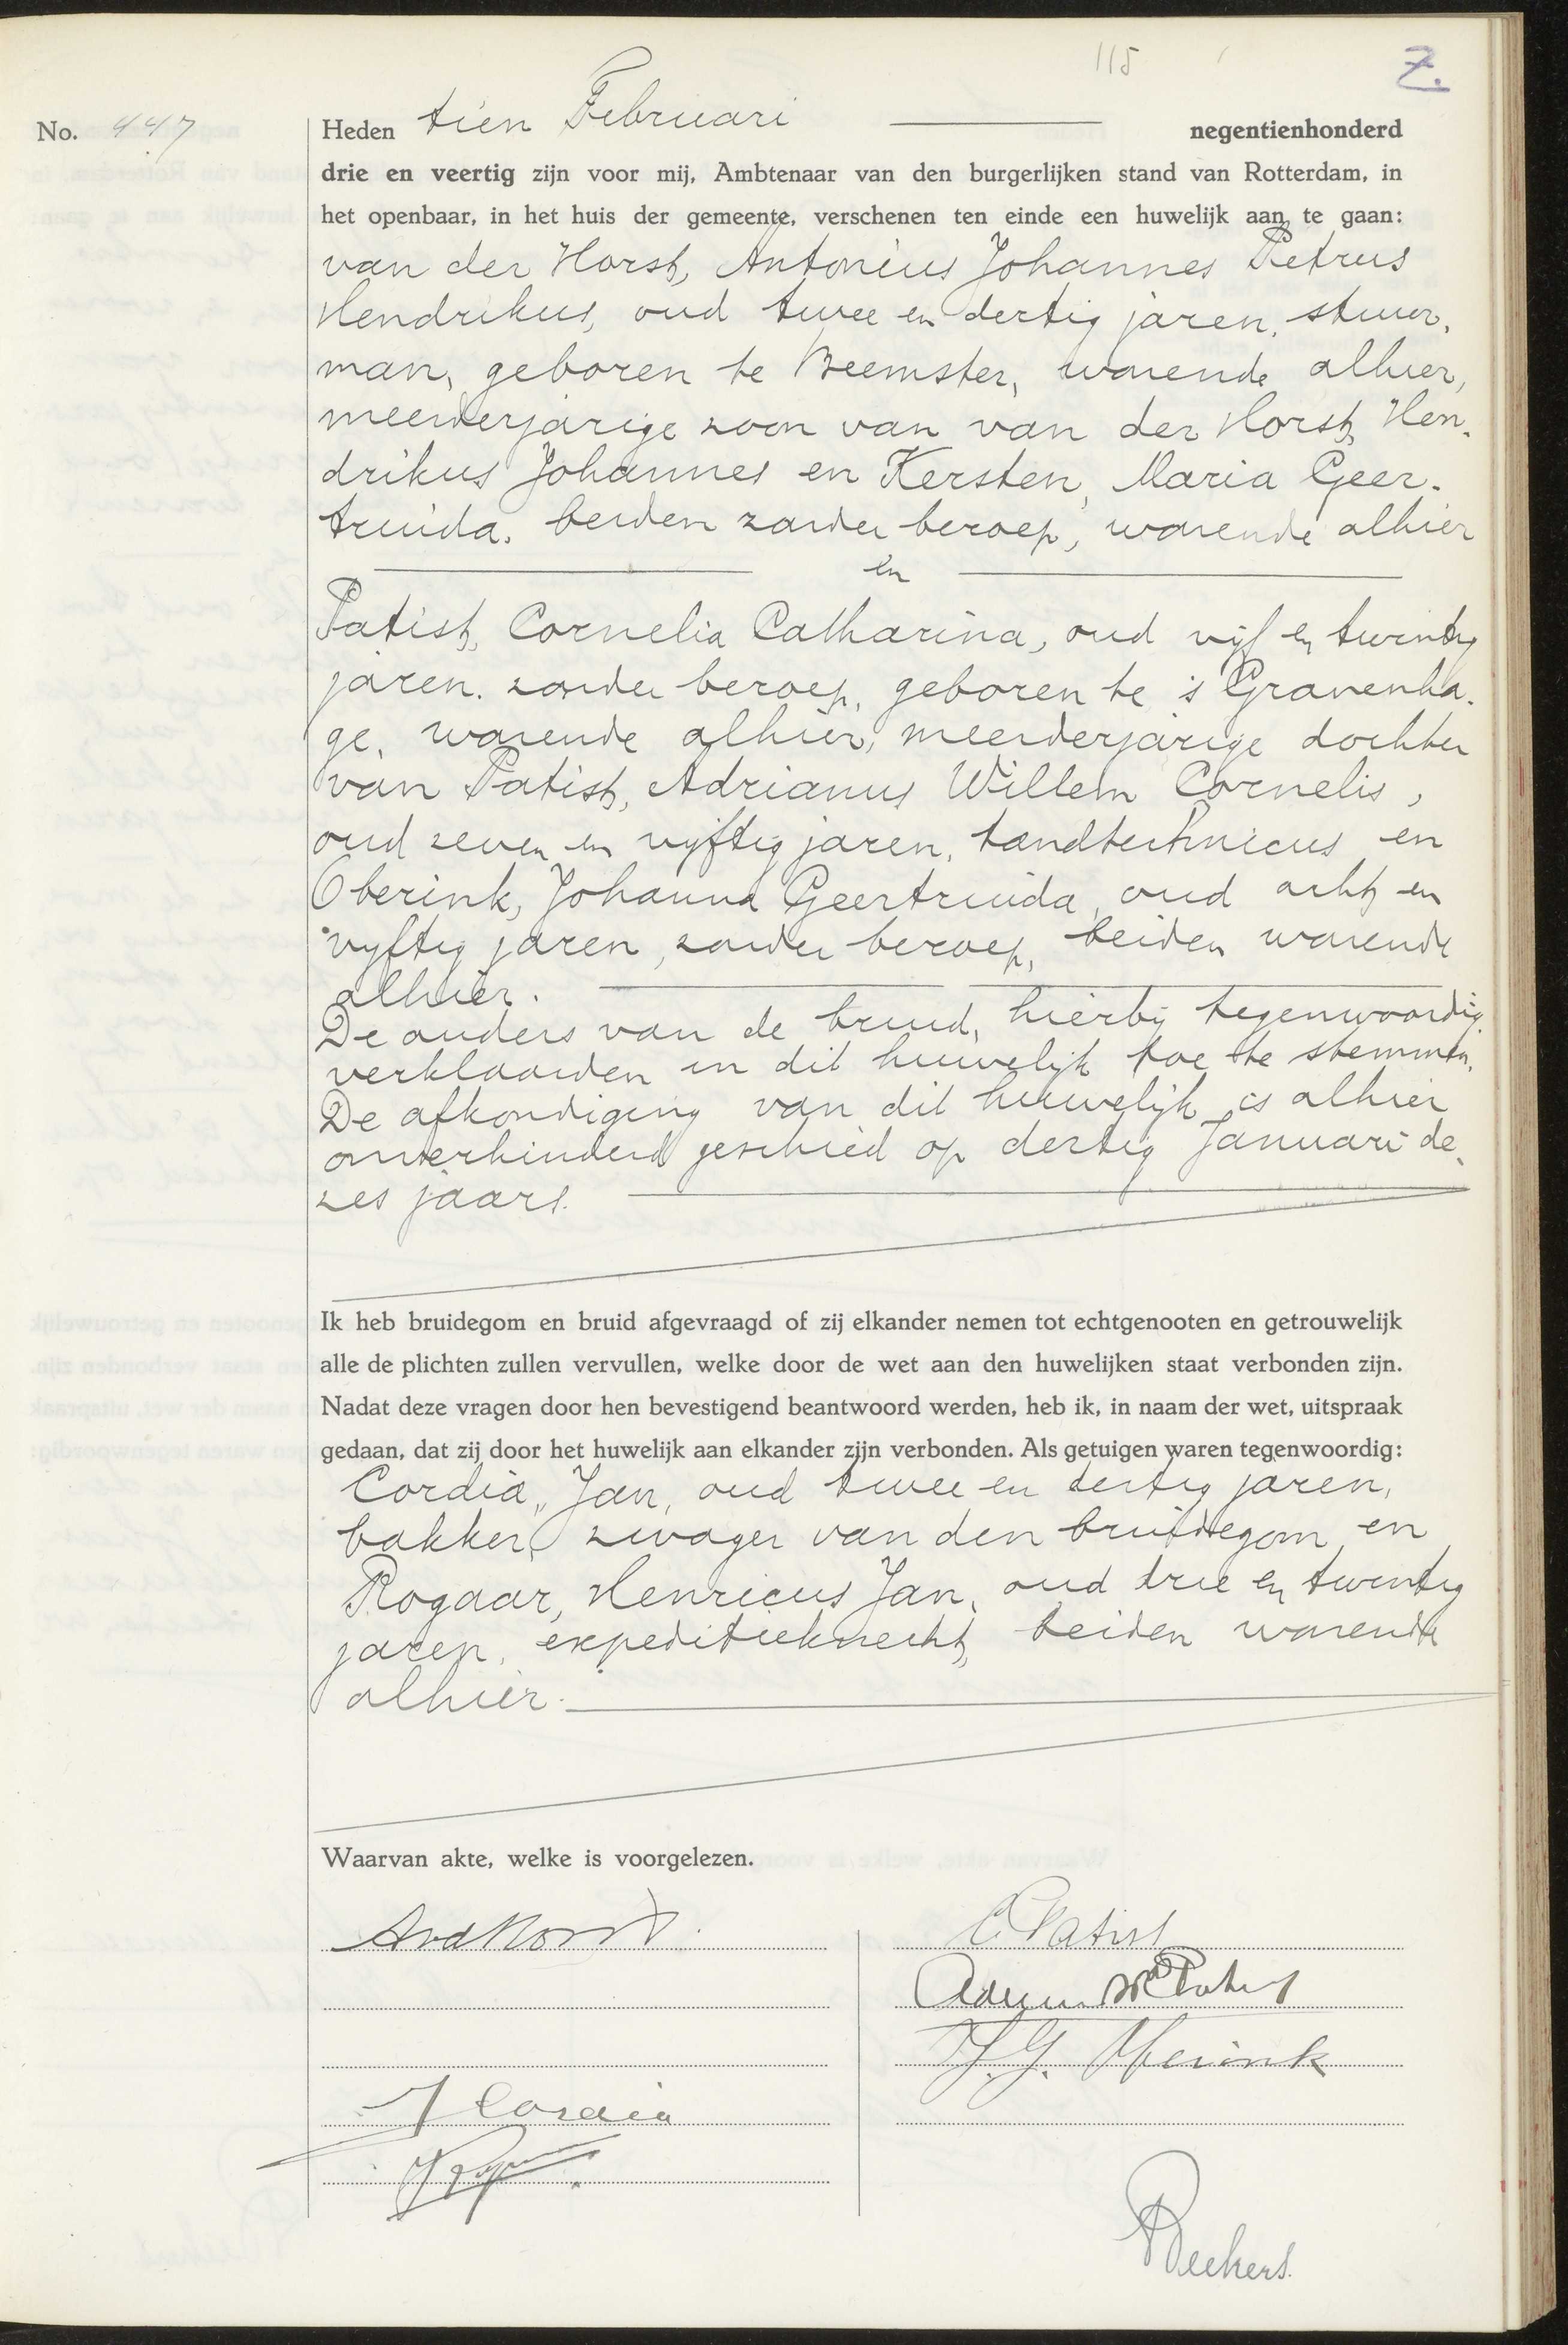 115
Z.
No. 447
Heden tien Februari negentienhonderd
drie en veertig zijn voor mij, Ambtenaar van den burgerlijken stand van Rotterdam, in
het openbaar, in het huis der gemeente, verschenen ten einde een huwelijk aan te gaan:
van der Horst, Antonius Johannes Petrus
Hendrikus, oud twee en dertig jaren, stuur-
man, geboren te Beemster, wonende alhier,
meerderjarige zoon van van der Horst, Hen-
drikus Johannes en Kersten, Maria Geer-
truida, beiden zonder beroep, wonende alhier
en
Patist, Cornelia Catharina, oud vijf en twintig
jaren, zonder beroep, geboren te 's Gravenha-
ge, wonende alhier, meerderjarige dochter
van Patist, Adrianus Willem Cornelis,
oud zeven en vijftig jaren, tandtechnicus en
Oberink, Johanna Geertruida, oud acht en
vijftig jaren, zonder beroep, beiden wonende
alhier.
De ouders van de bruid, hierbij tegenwoordig,
verklaarden in dit huwelijk toe te stemmen.
De afkondiging van dit huwelijk is alhier
onverhinderd geschied op dertig Januari de-
zes jaars.
Ik heb bruidegom en bruid afgevraagd of zij elkander nemen tot echtgenooten en getrouwelijk
alle de plichten zullen vervullen, welke door de wet aan den huwelijken staat verbonden zijn.
Nadat deze vragen door hen bevestigend beantwoord werden, heb ik, in naam der wet, uitspraak
gedaan, dat zij door het huwelijk aan elkander zijn verbonden. Als getuigen waren tegenwoordig:
Cordia, Jan, oud twee en dertig jaren,
bakker, zwager van den bruidegom en
Rogaar, Henricus Jan, oud drie en twintig
jaren, expeditieknecht, beiden wonende
alhier.
Waarvan akte, welke is voorgelezen.
AvdHorst
C Patist
J. G. Oberink
J Cordia